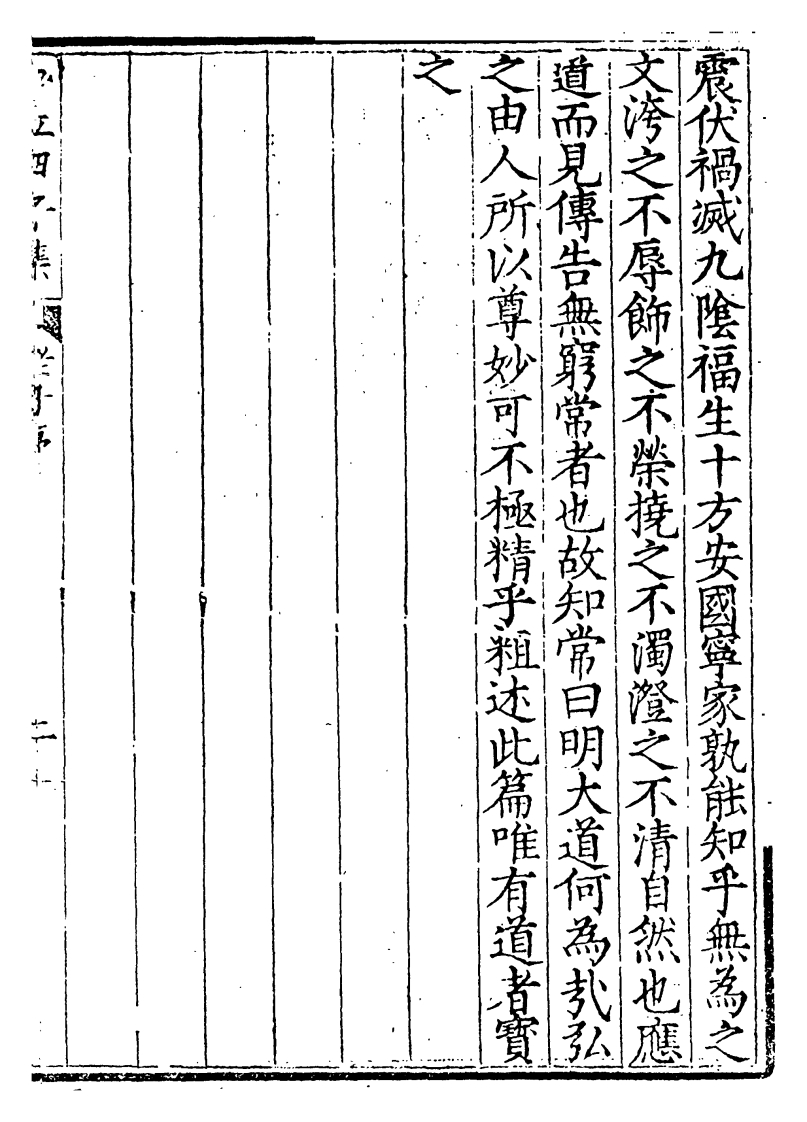 震伏禍滅九陰福生十方安國寧家孰能知乎無為之
文洿之不辱飾之不榮撓之不濁澄之不清自然也應
道而見傳告無窮常者也故知常曰明大道何為哉弘
之由人所以尊妙可不極精乎粗述此篇唯有道者寶
之